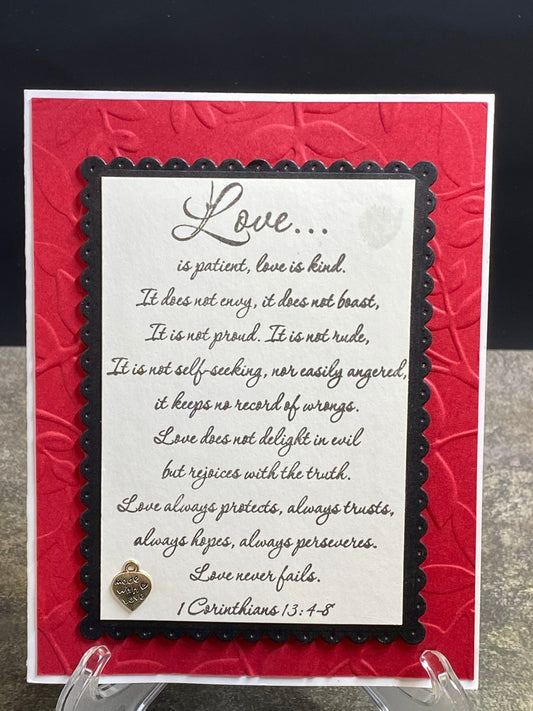 Love...
is patient, love is kind.
It does not envy, it does not boast,
It is not proud. It is not rude,
It is not self-seeking, nor easily angered,
it keeps no record of wrongs.
Love does not delight in evil
but rejoices with the truth.
Love always protects, always trusts,
always hopes, always perseveres.
Love never fails.
1 Corinthians 13:4-8
made
with
love